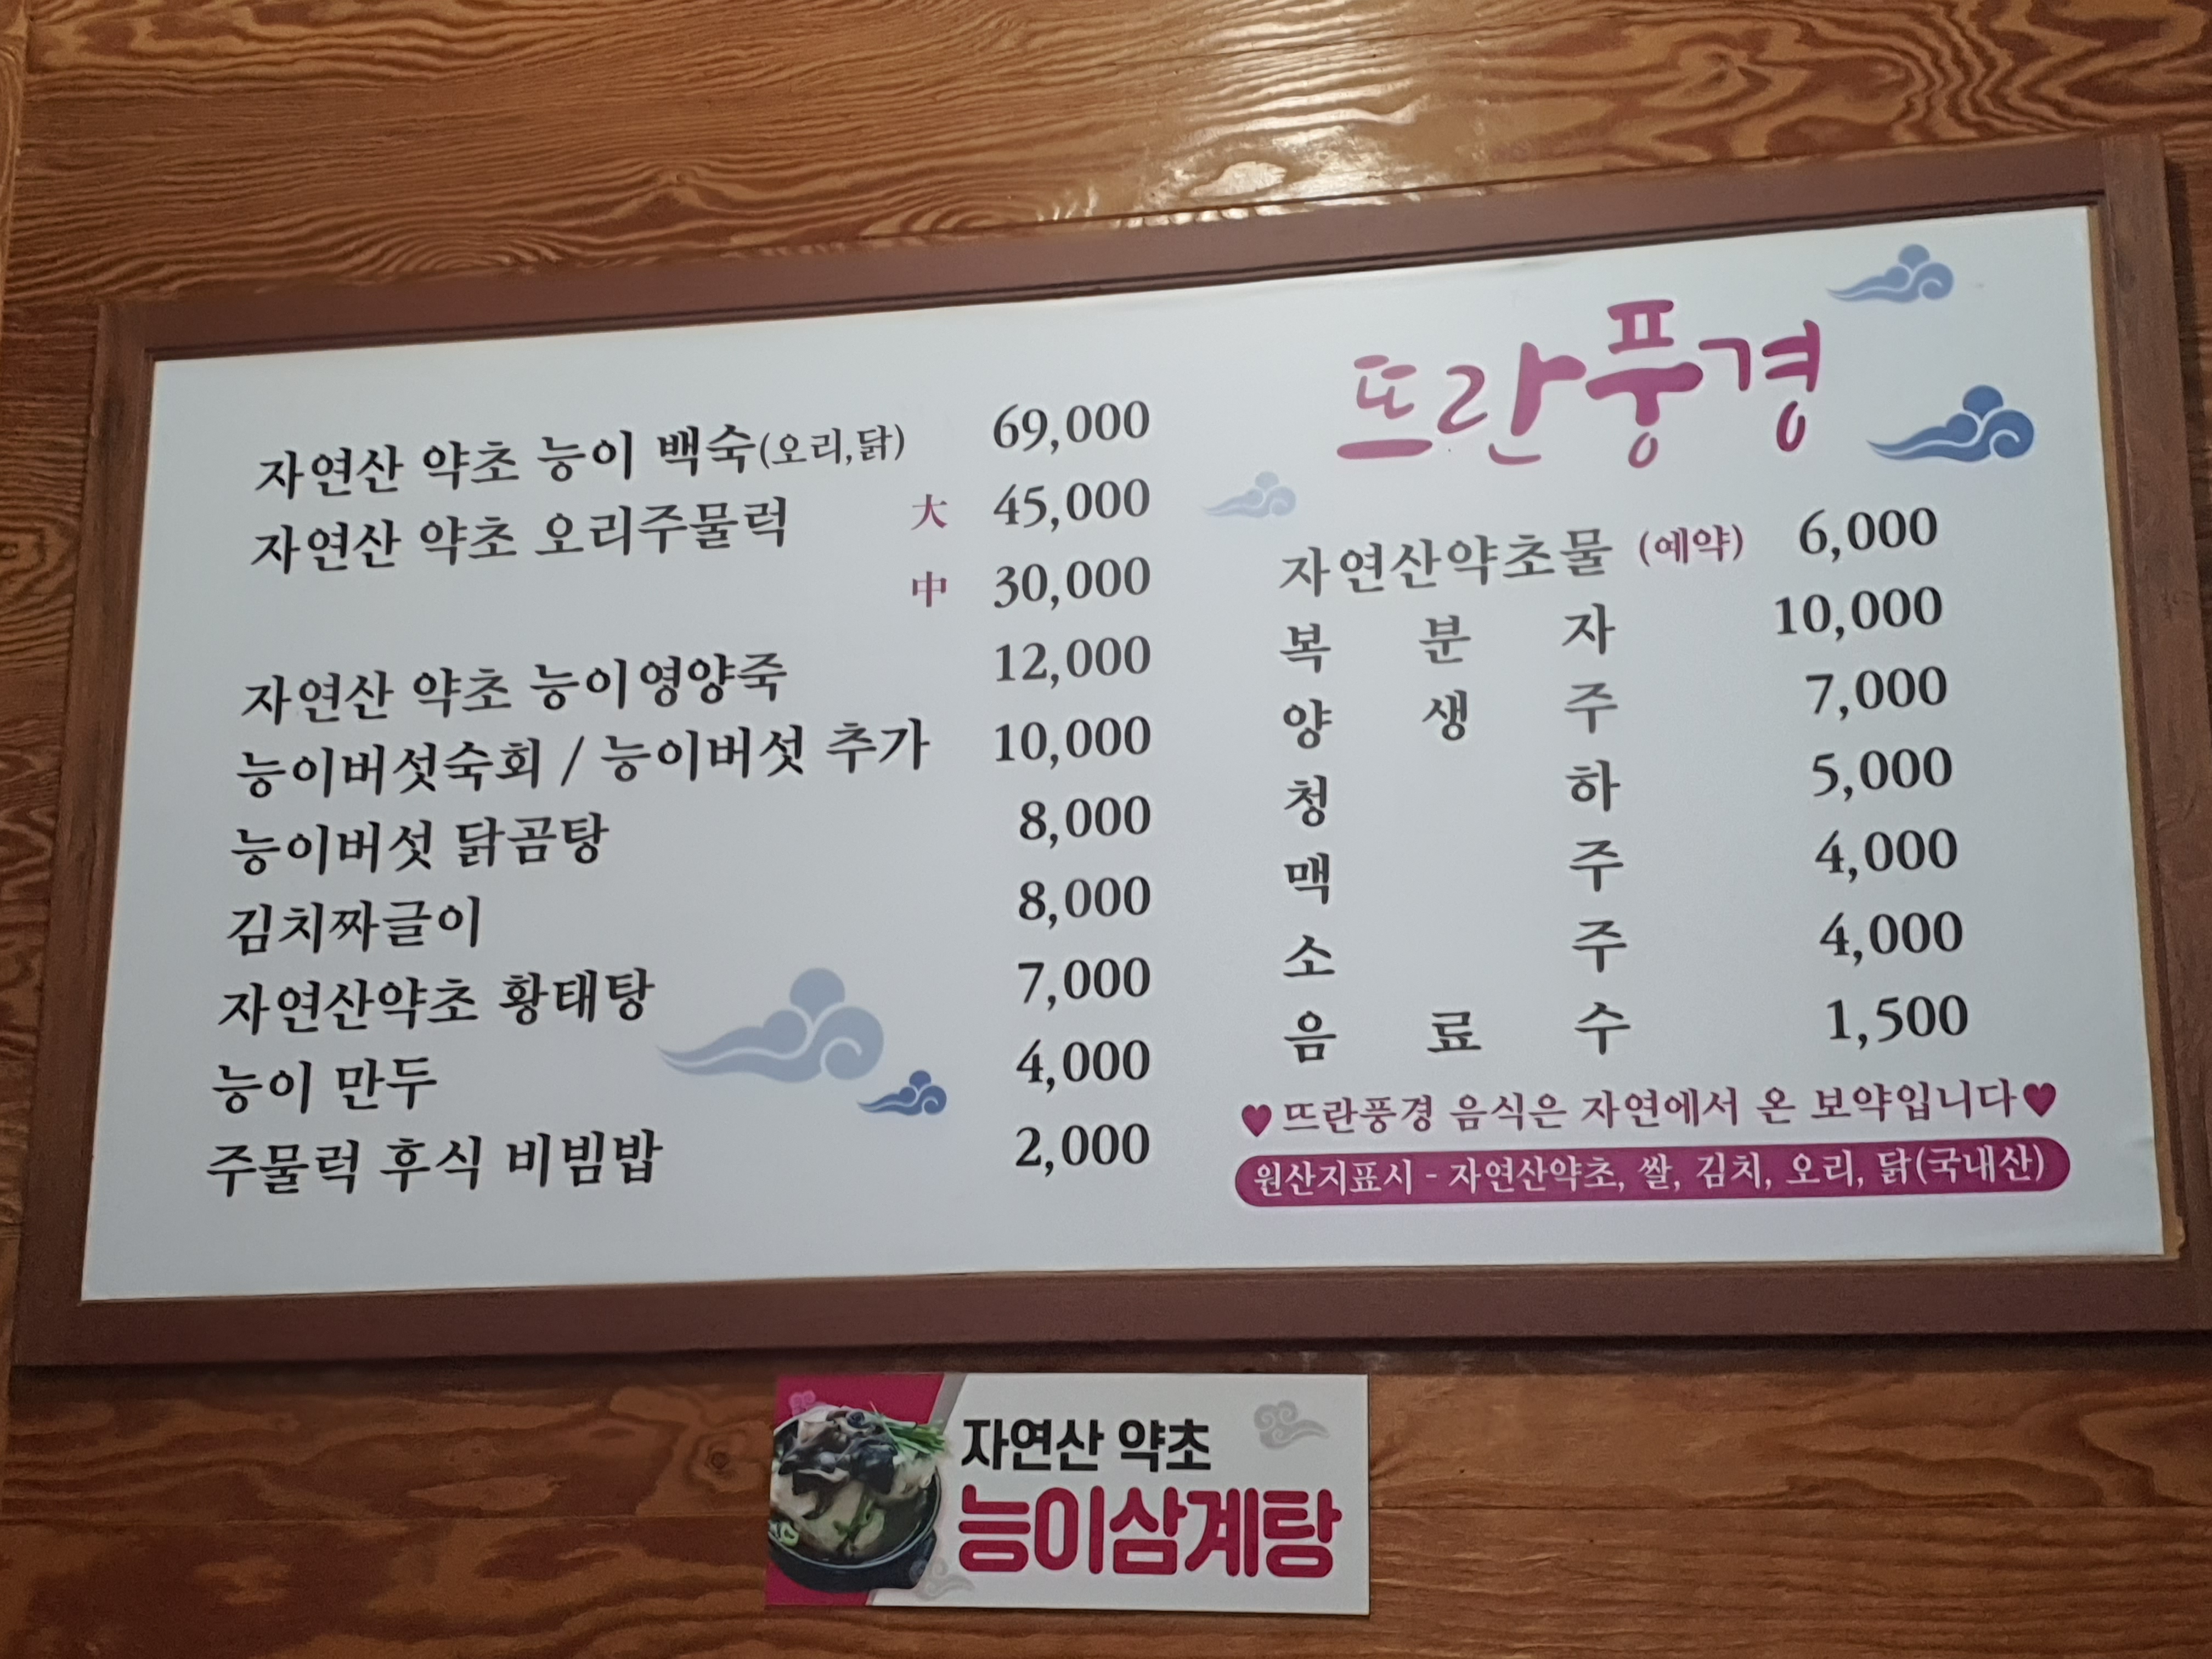 자연산 약초 능이 백숙(오리,닭) 69,000
자연산 약초 오리주물럭 大 45,000
中 30,000
자연산 약초 능이영양죽 12,000
능이버섯숙회 / 능이버섯 추가 10,000
능이버섯 닭곰탕 8,000
김치짜글이 8,000
자연산약초 황태탕 7,000
능이 만두 4,000
주물럭 후식 비빔밥 2,000
뜨란풍경
자연산약초물 (예약) 6,000
복분자 10,000
양생주 7,000
청하 5,000
맥주 4,000
소주 4,000
음료수 1,500
♥뜨란풍경 음식은 자연에서 온 보약입니다♥
원산지표시 - 자연산약초, 쌀, 김치, 오리, 닭(국내산)
자연산 약초
능이삼계탕